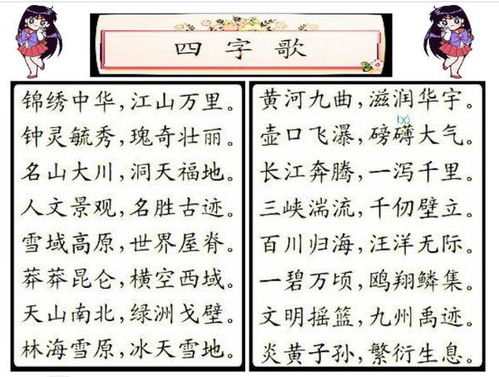 四字歌
锦绣中华,江山万里。
钟灵毓秀,瑰奇壮丽。
名山大川,洞天福地。
人文景观,名胜古迹。
雪域高原,世界屋脊。
莽莽昆仑,横空西域。
天山南北,绿洲戈壁。
林海雪原,冰天雪地。
黄河九曲,滋润华宇。
壶口飞瀑,磅礴大气。
长江奔腾,一泻千里。
三峡湍流,千仞壁立。
百川归海,汪洋无际。
一碧万顷,鸥翔鳞集。
文明摇篮,九州禹迹。
炎黄子孙,繁衍生息。